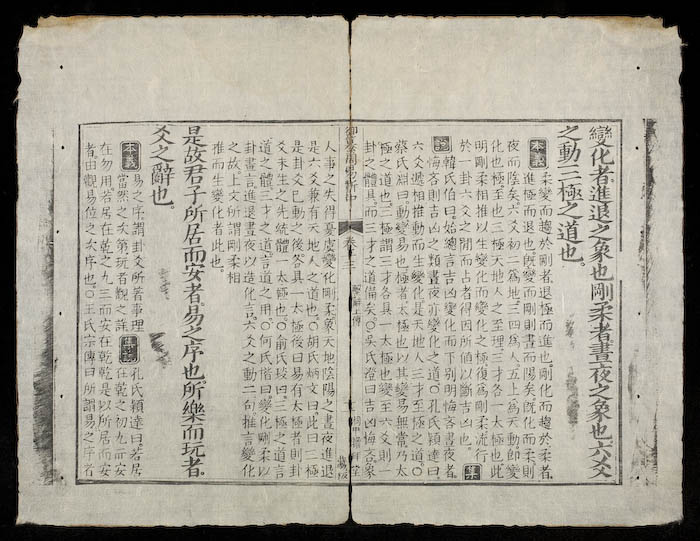 變化者進退之象也剛柔者晝夜之象也六爻
之動三極之道也。
本義 柔變而趨於剛者退極而進也。剛化而趨於柔者。
進極而退也既變而剛則晝而陽矣既化而柔則
夜而陰矣六爻初二為地三四為人五上為天動即變
化也極至也三極天地人之至理三才各一太極也此
明剛柔相推以生變化而變化之極復為剛柔流行
於一卦六爻之間而占者得因所值以斷吉凶也。 集
說 韓氏伯曰。始總言吉凶變化而下別明悔吝晝夜者。
悔吝則吉凶之類晝夜亦變化之道○孔氏穎達曰
六爻遞相推動而生變化是天地人三才至極之道○
蔡氏淵曰動變易也極者太極也以其變易无常乃太
極之道也三極謂三才各具一太極也變至六爻則一
卦之體具而三才之道備矣○吳氏澄曰吉凶悔吝象
御纂周易折中 卷十三 繫辭上傳
人事之失得憂虞變化剛柔象天地陰陽之晝夜進退
是六爻兼有天地人之道也○胡氏炳文曰此曰三極
是卦爻已動之後各具一太極後曰易有太極者則卦
爻未生之先統體一太極也○俞氏琰曰三極之道言
道之體三才之道言道之用○何氏楷曰變化剛柔以
卦畫言進退晝夜以造化言六爻之動二句推言變化
之故。上文所謂剛柔相
推而生變化者此也。
是故君子所居而安者易之序也所樂而玩者。
爻之辭也。
本義 易之序謂卦爻所著事理
當然之次第玩者觀之詳 集說 孔氏穎達曰若居
在乾之初九而安
在勿用若居在乾之九三而安在乾乾是以所居而安
者由觀易位之次序也○王氏宗傳曰所謂易之序者